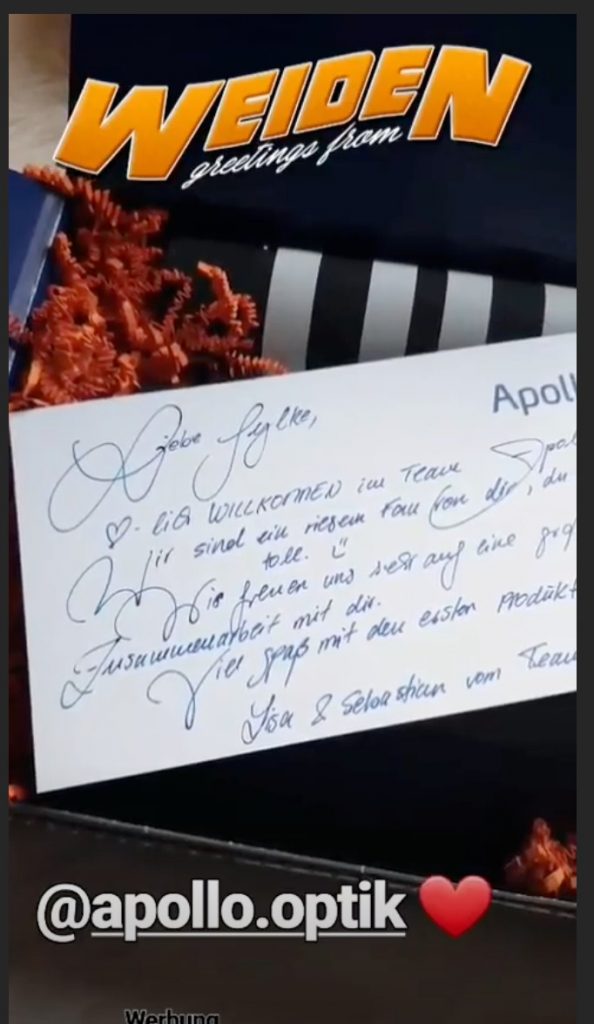 WEIDEN
greetings from
Apoll
Liebe Sylke,
♡-lich WILLKOMMEN im Team Apol
Wir sind ein riesen Fan von dir, du
toll. ü
Wir freuen uns sehr auf eine gro
Zusammenarbeit mit dir.
Viel Spaß mit den ersten Produkt
Lisa & Sebastian vom Team
@apollo.optik ❤️
Werbung